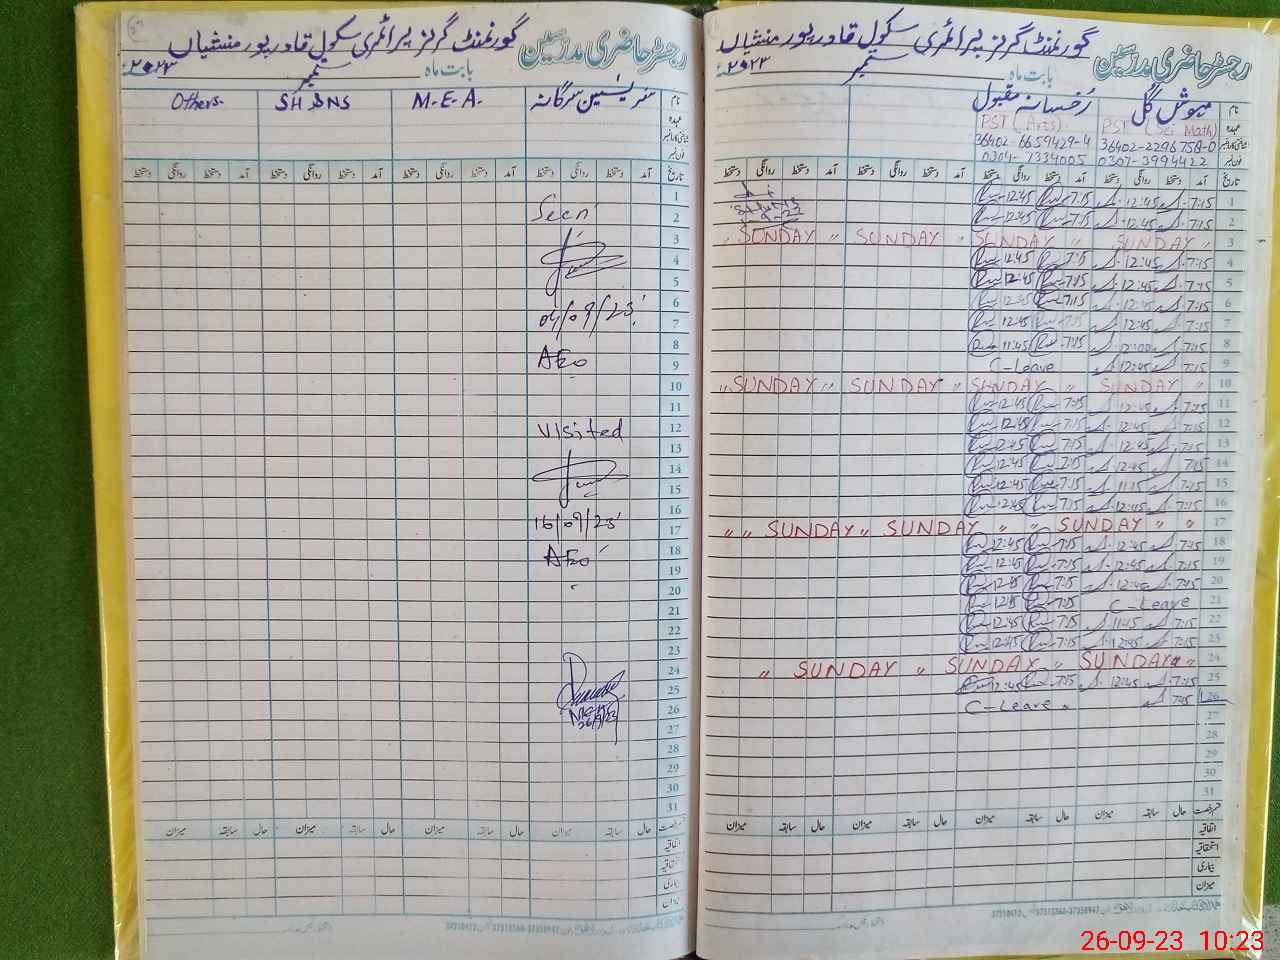 رجسٹر حاضری مدرسین
گورنمنٹ گرلز پرائمری سکول قادر پور منشیاں
بابت ماہ ستمبر ۲۰۲۳ء
نام مہوش گل رُخسانہ مقبول
عہدہ PST (Sci Math) PST (Arts)
36402-2296758-0 36402-6659429-4
0307-3994422 0304-7334005
تاریخ آمد دستخط روانگی دستخط آمد دستخط روانگی دستخط آمد دستخط روانگی دستخط آمد دستخط روانگی دستخط
1 7:15 12:45 7:15 12:45
2 7:15 12:45 7:15 12:45
3 " SUNDAY " SUNDAY " SUNDAY " SUNDAY "
4 7:15 12:45 7:15 12:45
5 7:15 12:45 7:15 12:45
6 7:15 12:45 7:15 12:45
7 7:15 12:45 7:15 12:45
8 7:15 12:00 7:15 11:45
9 7:15 12:45 C-Leave
10 " SUNDAY " SUNDAY " SUNDAY " SUNDAY "
11 7:15 12:45 7:15 12:45
12 7:15 12:45 7:15 12:45
13 7:15 12:45 7:15 12:45
14 7:15 12:45 7:15 12:45
15 7:15 11:15 7:15 12:45
16 7:15 12:45 7:15 12:45
17 " " SUNDAY " SUNDAY " " SUNDAY " "
18 7:15 12:45 7:15 12:45
19 7:15 12:45 7:15 12:45
20 7:15 12:45 7:15 12:45
21 C-Leave 7:15 12:45
22 7:15 11:45 7:15 12:45
23 7:15 12:45 7:15 12:45
24 " SUNDAY " SUNDAY " SUNDAY "
25 7:15 12:45 7:15 12:45
26 7:15 C-Leave
27
28
29
30
31
حال سابقہ میزان حال سابقہ میزان حال سابقہ میزان حال سابقہ میزان
اتفاقیہ
استحقاقیہ
بیماری
میزان
رجسٹر حاضری مدرسین
گورنمنٹ گرلز پرائمری سکول قادر پور منشیاں
بابت ماہ ستمبر ۲۰۲۳ء
نام M.E.A. SH & NS Others.
عہدہ
تاریخ آمد دستخط روانگی دستخط آمد دستخط روانگی دستخط آمد دستخط روانگی دستخط آمد دستخط روانگی دستخط
1
2 Seen
3
4
5
6
7 04/09/23
8
9 AEO
10
11
12 Visited
13
14
15
16
17 16/09/23
18 AEO
19
20
21
22
23
24
25
26
27 26/9/23
28
29
30
31
حال سابقہ میزان حال سابقہ میزان حال سابقہ میزان حال سابقہ میزان
اتفاقیہ
استحقاقیہ
بیماری
میزان
26-09-23 10:23